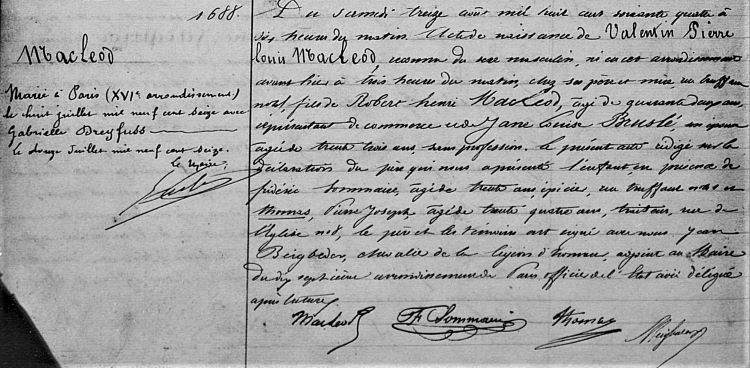 1688.
MacLeod
Marié à Paris (XVIe arrondissement)
le huit juillet mil neuf cent seize avec
Gabrielle Dreyfuss
le douze Juillet mil neuf cent seize.
Du samedi treize août mil huit cent soixante quatre à
dix heures du matin Acte de naissance de Valentin Pierre
Louis MacLeod, reconnu du sexe masculin, né en cet arrondissement
avant hier à trois heures du matin, chez ses père et mère, rue Truffaut
no 41, fils de Robert henri MacLeod, agé de quarante deux ans,
représentant de commerce et de Jane Louise Beuslé son épouse
agée de trente trois ans sans profession. Le présent acte rédigé sur la
déclaration du père qui nous a présenté l'enfant en présence de
frédéric Sommaire, agé de trente ans, épicier, rue Truffaut et
thomas, Pierre Joseph agé de trente quatre ans, traiteur, rue de
l'église no 8, le père et les témoins ont signé avec nous Jean
chevalier de la légion d'honneur, adjoint au Maire
du dix septième arrondissement de Paris officier de l'Etat civil délégué
après lecture
MacLeod F Sommaire Thomas